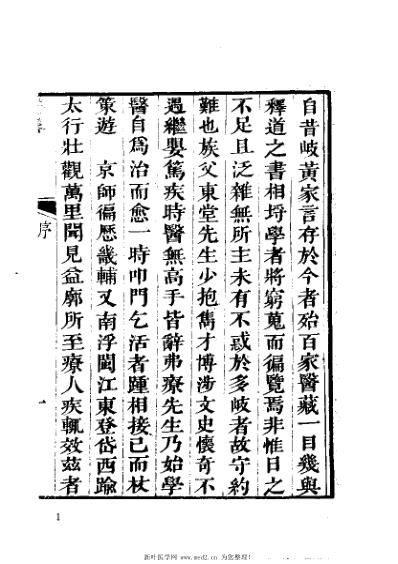 自昔岐黄家言存於今者殆百家醫藏一目幾與
釋道之書相埒學者將窮蒐而徧覽焉非惟日之
不足且泛雜無所主未有不惑於多岐者故守約
難也族父東堂先生少抱雋才博涉文史懷奇不
遇繼嬰篤疾時醫無高手皆辭弗療先生乃始學
醫自爲治而愈一時叩門乞活者踵相接已而杖
策遊 京師徧歷畿輔又南浮閩江東登岱西踰
太行壯觀萬里聞見益廓所至療人疾輒效茲者
序
一
1
新叶医学网 www.med2.cn 为您整理!